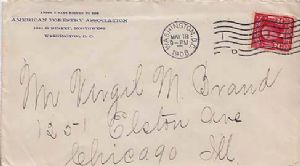 AMERICAN FORESTRY ASSOCIATION
WASHINGTON, D. C.
WASHINGTON, D.C.
MAY 18
5-PM
1908
Mr Virgil M Brand
1251 Elston Ave
Chicago Ill